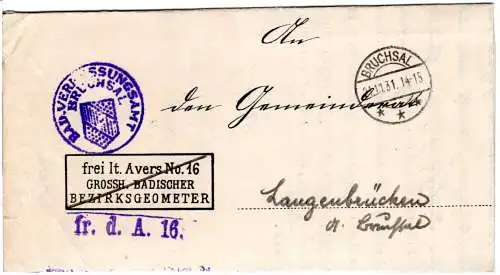 An
BAD. VERMESSUNGSAMT
BRUCHSAL
BRUCHSAL
31. 14-15
den Gemeinderat
frei lt. Avers No. 16
GROSSH. BADISCHER
BEZIRKSGEOMETER
fr. d. A. 16.
Langenbrücken
a. Bruchsal